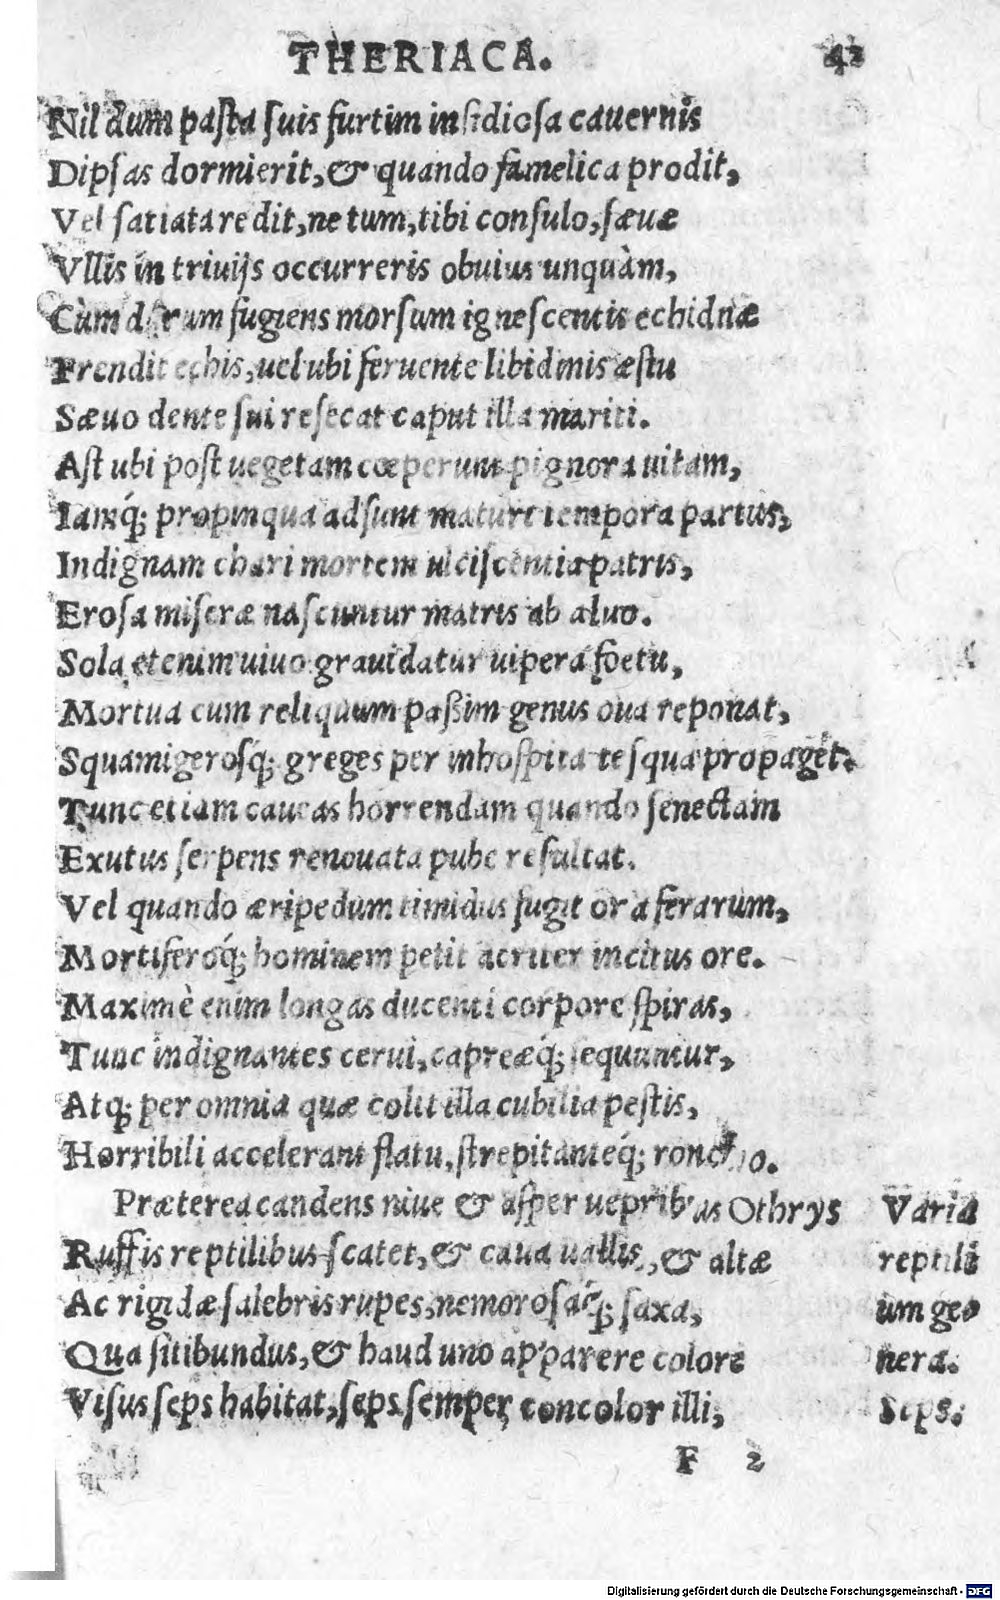 THERIACA. 42
Nil dum pasta suis furtim insidiosa cauernis
Dipsas dormierit, & quando famelica prodit,
Vel satiata redit, ne tum, tibi consulo, sæuæ
Vllis in triuijs occurreris obuius unquàm,
Cùm durum fugiens morsum ignescentis echidnæ
Prendit echis, uel ubi feruente libidinis æstu
Sæuo dente sui resecat caput illa mariti.
Ast ubi post uegetam cœperunt pignora uitam,
Iamq́; propinqua adsunt maturi tempora partus,
Indignam chari mortem ulciscentia patris,
Erosa miseræ nascuntur matris ab aluo.
Sola etenim uiuo grauidatur uipera foetu,
Mortua cum reliquum paßim genus oua reponat,
Squamigerosq́; greges per inhospita tesqua propaget.
Tunc etiam caueas horrendam quando senectam
Exutus serpens renouata pube resultat.
Vel quando æripedum timidus fugit ora ferarum,
Mortiferoq́; hominem petit acriter incitus ore.
Maximè enim longas ducenti corpore spiras,
Tunc indignantes cerui, capreæq́; sequuntur,
Atq; per omnia quæ colit illa cubilia pestis,
Horribili accelerant flatu, strepitanteq́; roncho.
Præterea candens niue & asper uepribus Othrys
Ruffis reptilibus scatet, & caua uallis, & altæ
Ac rigidæ salebris rupes, nemorosaq́; saxa,
Qua sitibundus, & haud uno apparere colore
Visus seps habitat, seps semper concolor illi,
Varia
reptili
um ge
nera.
Seps.
F 2
Digitalisierung gefördert durch die Deutsche Forschungsgemeinschaft - DFG